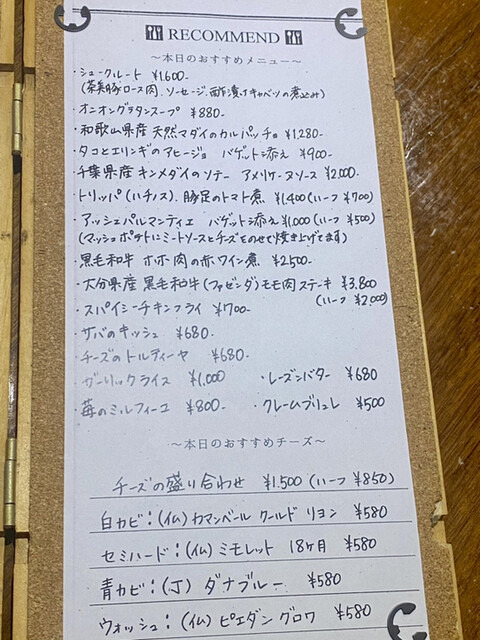 RECOMMEND
～本日のおすすめメニュー～
・シュークルート ¥1,600-
(茶美豚ロース肉、ソーセージ、酢漬けキャベツの煮込み)
・オニオングラタンスープ ¥880-
・和歌山県産 天然マダイのカルパッチョ ¥1,280-
・タコとエリンギのアヒージョ バゲット添え ¥900-
・千葉県産 キンメダイのソテー アメリケーヌソース ¥2,000-
・トリッパ(ハチノス)、豚足のトマト煮 ¥1,400(ハーフ ¥700)
・アッシェパルマンティエ バゲット添え ¥1,000(ハーフ ¥500)
(マッシュポテトにミートソースとチーズをのせて焼き上げてます)
・黒毛和牛 ホホ肉の赤ワイン煮 ¥2,500-
・大分県産 黒毛和牛(ファゼンダ)モモ肉ステーキ ¥3,800
(ハーフ ¥2,000)
・スパイシーチキンフライ ¥700-
サバのキッシュ ¥680-
チーズのトルティーヤ ¥680-
ガーリックライス ¥1,000 ・レーズンバター ¥680
苺のミルフィーユ ¥800- ・クレームブリュレ ¥500
～本日のおすすめチーズ～
チーズの盛り合わせ ¥1,500 (ハーフ ¥850)
白カビ:(仏)カマンベール クールド リヨン ¥580
セミハード:(仏)ミモレット 18ヶ月 ¥580
青カビ:(丁)ダナブルー ¥580
ウォッシュ:(仏)ピエダングロワ ¥580